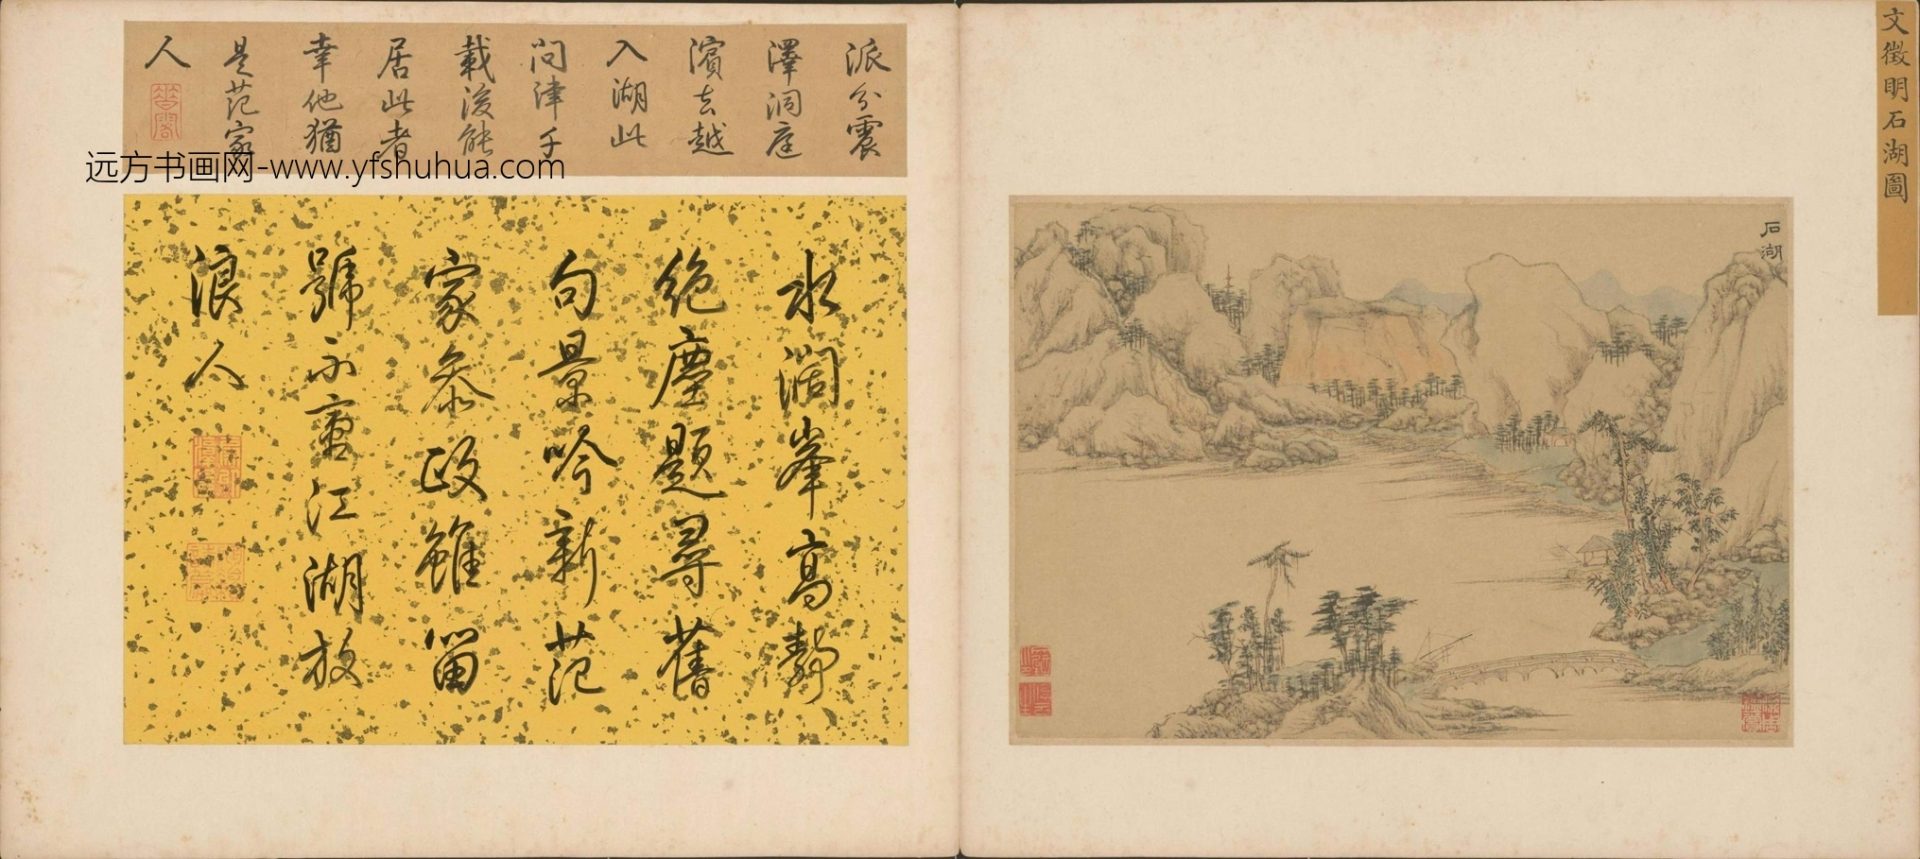 文徵明石湖圖
石湖
派分震
澤洞庭
濱去越
入湖此
问津千
載後能
居此者
幸他猶
是范家
人
远方书画网-www.yfshuhua.com
水阔峯高静
絶塵題尋舊
句景吟新范
家参政雖留
號不害江湖放
浪人